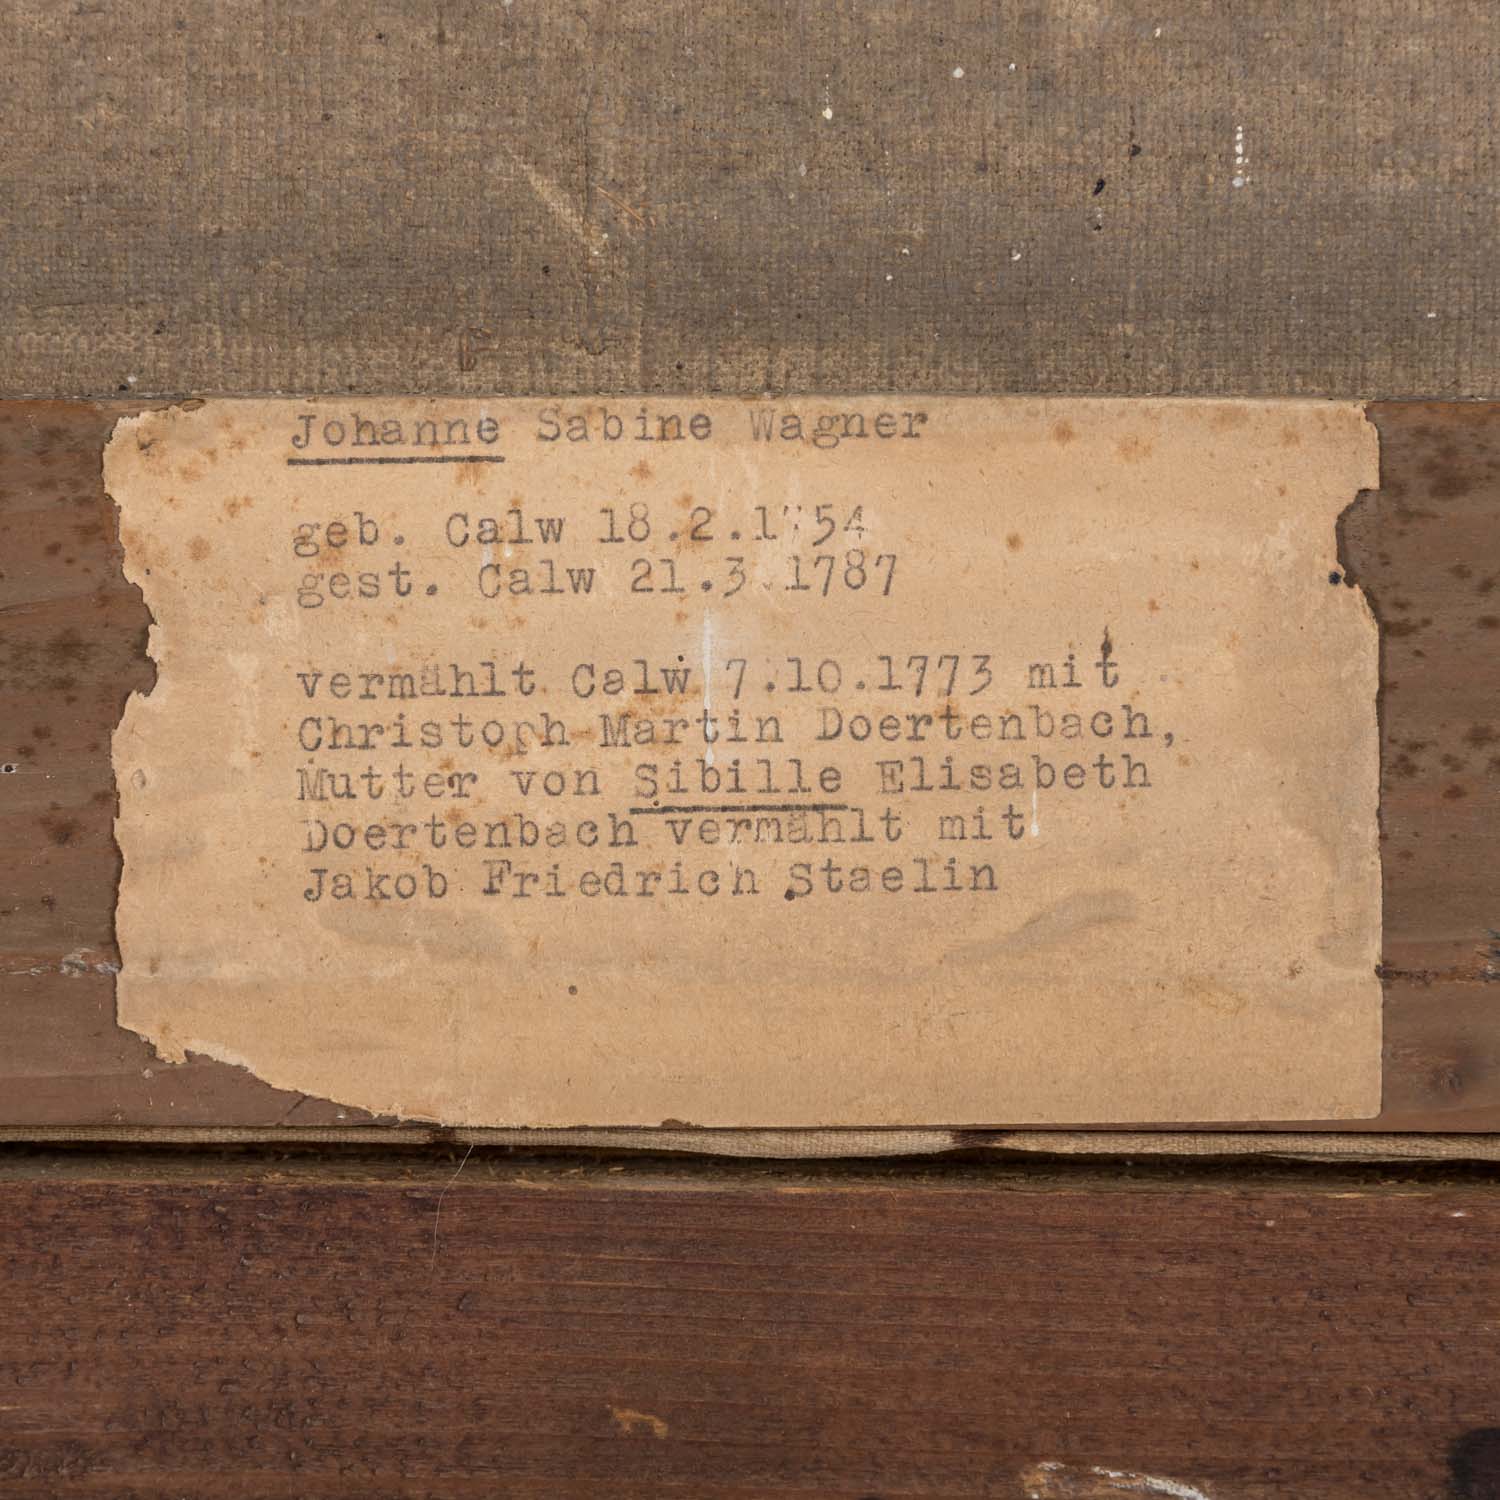 Johanne Sabine Wagner
geb. Calw 18.2.1754
gest. Calw 21.3.1787
vermählt Calw 7.10.1773 mit
Christoph Martin Doertenbach,
Mutter von Sibille Elisabeth
Doertenbach vermählt mit
Jakob Friedrich Staelin